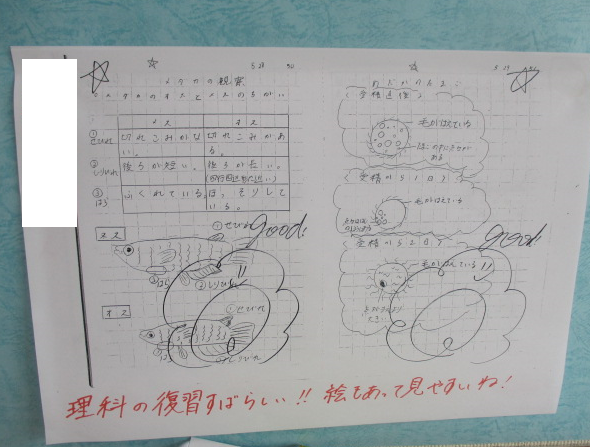 5 29
メダカの観察
メダカのオスとメスのちがい
メス オス
①せびれ 切れこみがない。 切れこみがある。
②しりびれ 後ろが短い。 後ろが長い。
③はら ふくれている。 ほっそりしている。
メス
①せびれ
good!
③はら ②しりびれ
オス
①せびれ
③はら ②しりびれ
5 29
めだかのたまご
〈受精直後〉
毛がはえている
ある
〈受精から1日〉
毛がはえている
good!
〈受精から2日〉
毛がはえている
理科の復習すばらしい!! 絵もあって見やすいね!